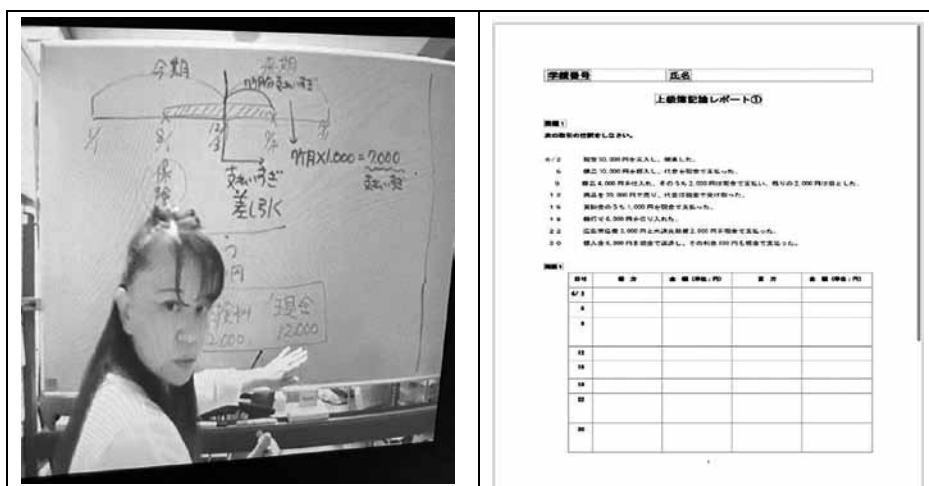 今期
来期
7ヶ月分支払いすぎ
1/1
8/1
12/31
7ヶ月×1,000=7,000
支払いすぎ
支払いすぎ
差し引く
保険
う
円
現金
12,000
2,000
学籍番号 氏名
上級簿記論レポート①
問題1
次の取引の仕訳をしなさい。
6/2 現金50,000円を元入し、開業した。
6 備品10,000円を購入し、代金を現金で支払った。
9 商品4,000円を仕入れ、そのうち2,000円は現金で支払い、残りの2,000円は掛とした。
12 商品を20,000円で売り、代金は現金で受け取った。
16 買掛金のうち1,000円を現金で支払った。
18 銀行で6,000円を借り入れた。
22 広告宣伝費3,000円と水道光熱費2,000円を現金で支払った。
30 借入金6,000円を現金で返済し、その利息100円も現金で支払った。
問題1
日付 借方 金額(単位:円) 貸方 金額(単位:円)
6/2
6
9
12
16
18
22
30
1